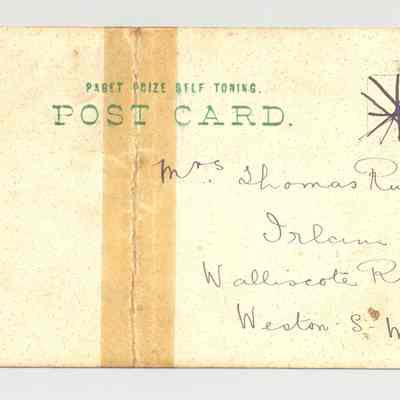 PAGET PRIZE SELF TONING.
POST CARD.
Mrs Thomas Ru
Irlam
Walliscote R
Weston-S-M